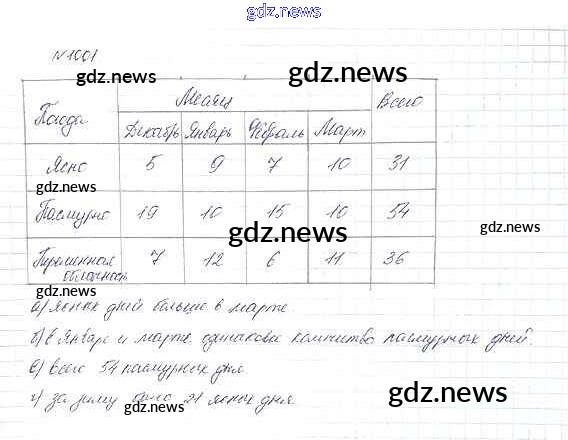 gdz.ru
№1001
gdz.ru gdz.ru
Погода Месяц Всего
Декабрь Январь Февраль Март
Ясно 5 9 7 10 31
gdz.ru
Пасмурно 19 10 15 10 54
gdz.ru gdz.ru
Переменная облачность 7 12 6 11 36
gdz.ru
а) ясных дней больше в марте.
б) в Январе и марте одинаковое количество пасмурных дней.
в) всего 54 пасмурных дня
г) за зиму было 21 ясных дня.
gdz.ru gdz.ru